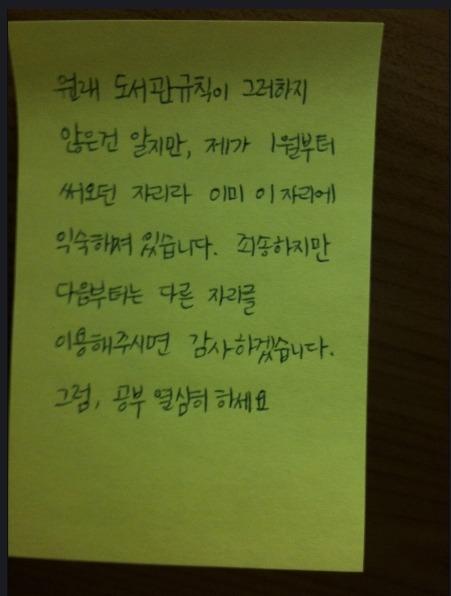 원래 도서관규칙이 그러하지
않은건 알지만, 제가 1월부터
써오던 자리라 이미 이자리에
익숙해져 있습니다. 죄송하지만
다음부터는 다른 자리를
이용해주시면 감사하겠습니다.
그럼, 공부 열심히 하세요